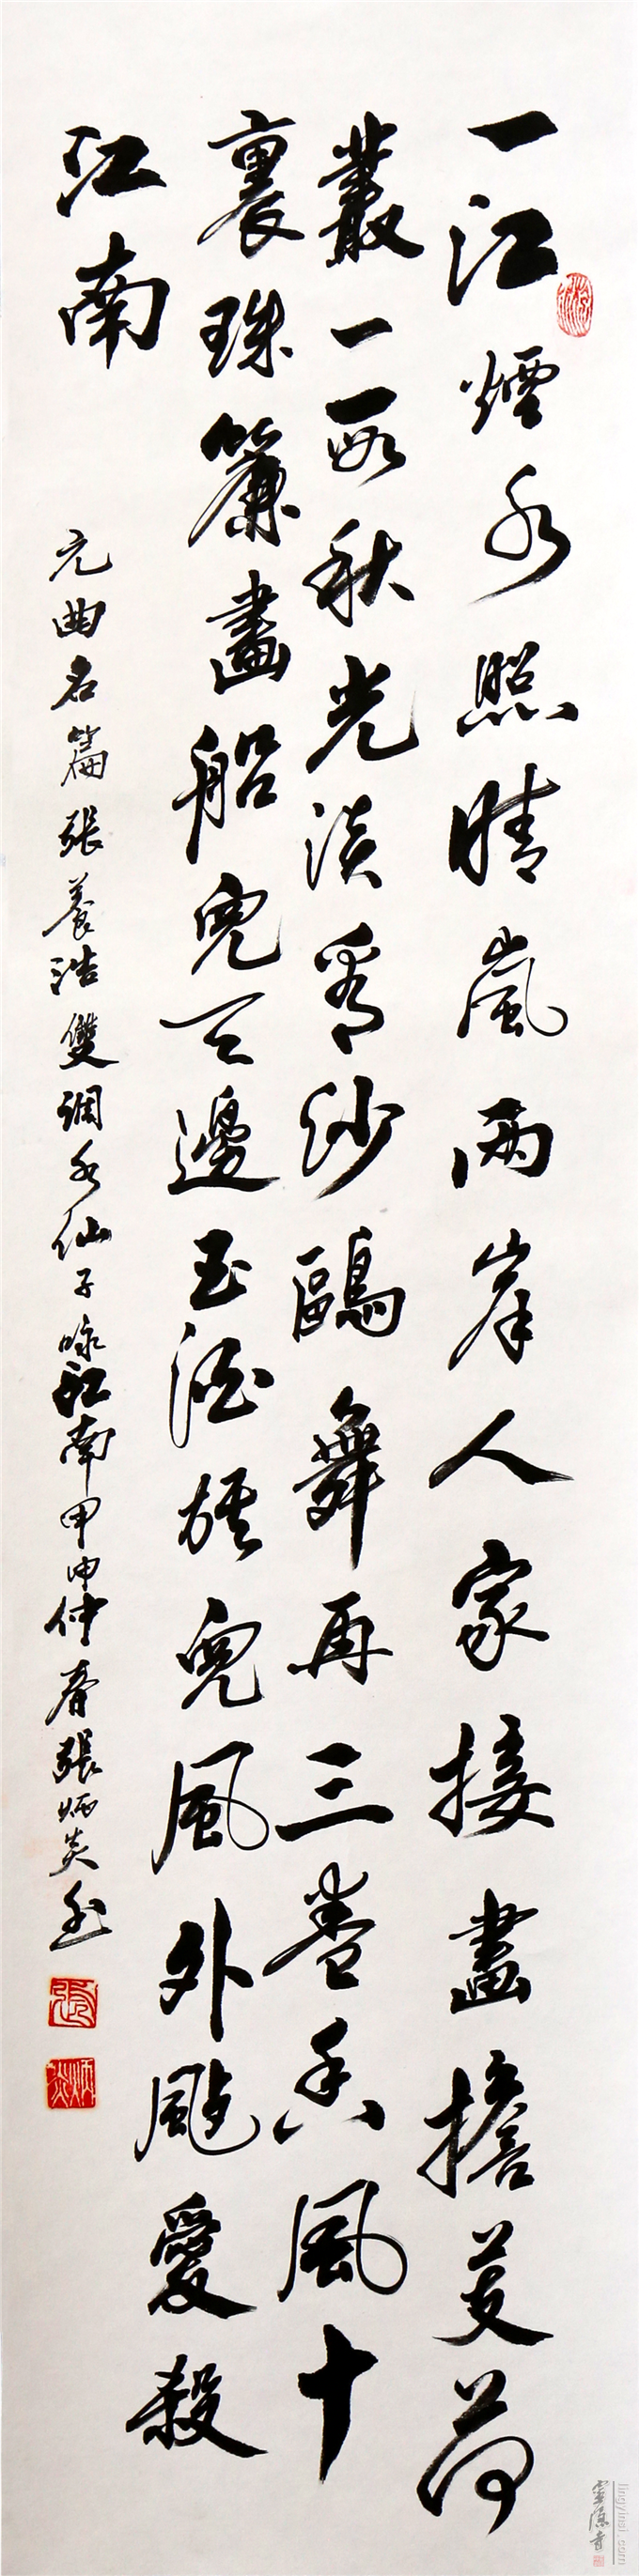 一江煙水照晴嵐兩岸人家接畫擔芰荷
叢一段秋光淡看沙鷗舞再三卷香風十
裏珠簾畫船兒天邊至酒旗兒風外颭愛殺
江南
元曲名篇張養浩雙調水仙子咏江南甲申仲春張炳炎書
張
炳炎
lingyinsi.com